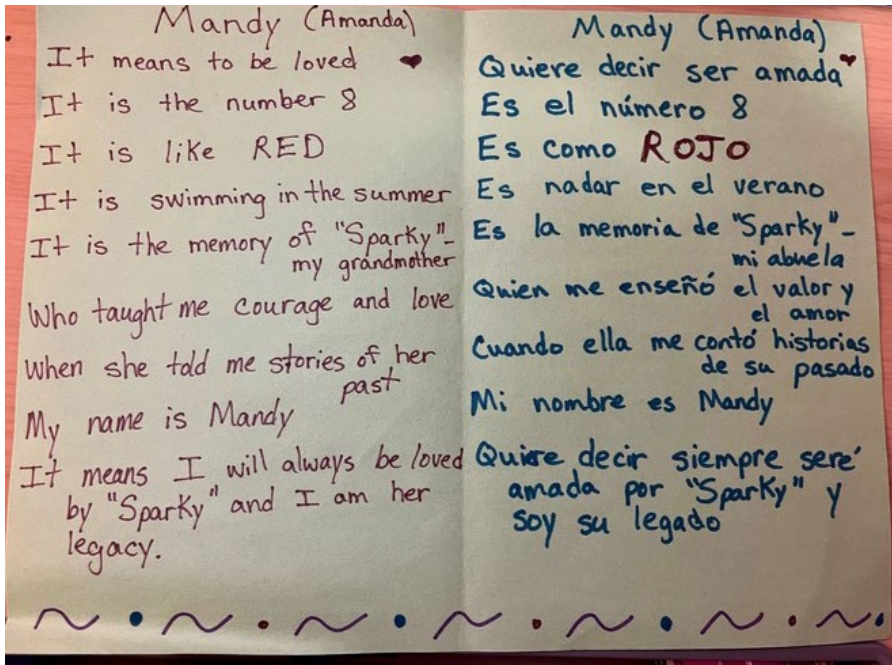 Mandy (Amanda)
It means to be loved
It is the number 8
It is like RED
It is swimming in the summer
It is the memory of "Sparky"-
my grandmother
Who taught me courage and love
When she told me stories of her
past
My name is Mandy
It means I will always be loved
by "Sparky" and I am her
legacy.
Mandy (Amanda)
Quiere decir ser amada
Es el número 8
Es como ROJO
Es nadar en el verano
Es la memoria de "Sparky"-
mi abuela
Quien me enseñó el valor y
el amor
Cuando ella me contó historias
de su pasado
Mi nombre es Mandy
Quiere decir siempre seré
amada por "Sparky" y
soy su legado